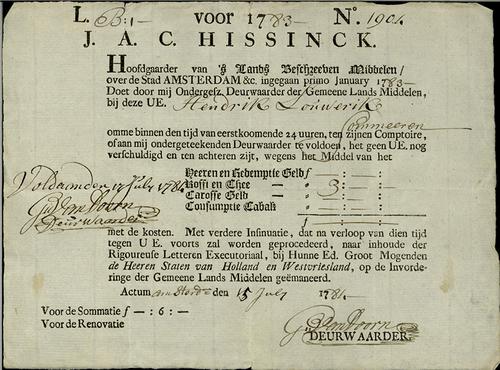 L. B:1- voor 1783- No. 1904.
J. A. C. HISSINCK.
Hoofdgaarder van 's Lands Beschreeven Middelen/
over de Stad AMSTERDAM &c. ingegaan primo January 1783-
Doet door mij Ondergesz. Deurwaarder der Gemeene Lands Middelen,
bij deze UE. Hendrik Louwerik
Commeeren
omme binnen den tijd van eerstkoomende 24 uuren, ten zijnen Comptoire,
of aan mij ondergeteekenden Deurwaarder te voldoen, het geen UE. nog
verschuldigd en ten achteren zijt, wegens het Middel van het
Heeren en Redemptie Geld f — : — : —
Koffi en Thee — 3 : — : —
Caroffe Geld — : — : —
Consumptie Tabak — : — : —
f — : — : —
Voldaan den 17 July 1784
Deurwaarder
met de kosten. Met verdere Insinuatie, dat na verloop van dien tijd
tegen U E. voorts zal worden geprocedeerd, naar inhoude der
Rigoureuse Letteren Executoriaal, bij Hunne Ed. Groot Mogenden
de Heeren Staten van Holland en Westvriesland, op de Invorde-
ringe der Gemeene Lands Middelen geëmaneerd.
Actum Amsterdam den 15 July 1784-
Voor de Sommatie f —: 6: —
Voor de Renovatie
DEURWAARDER.